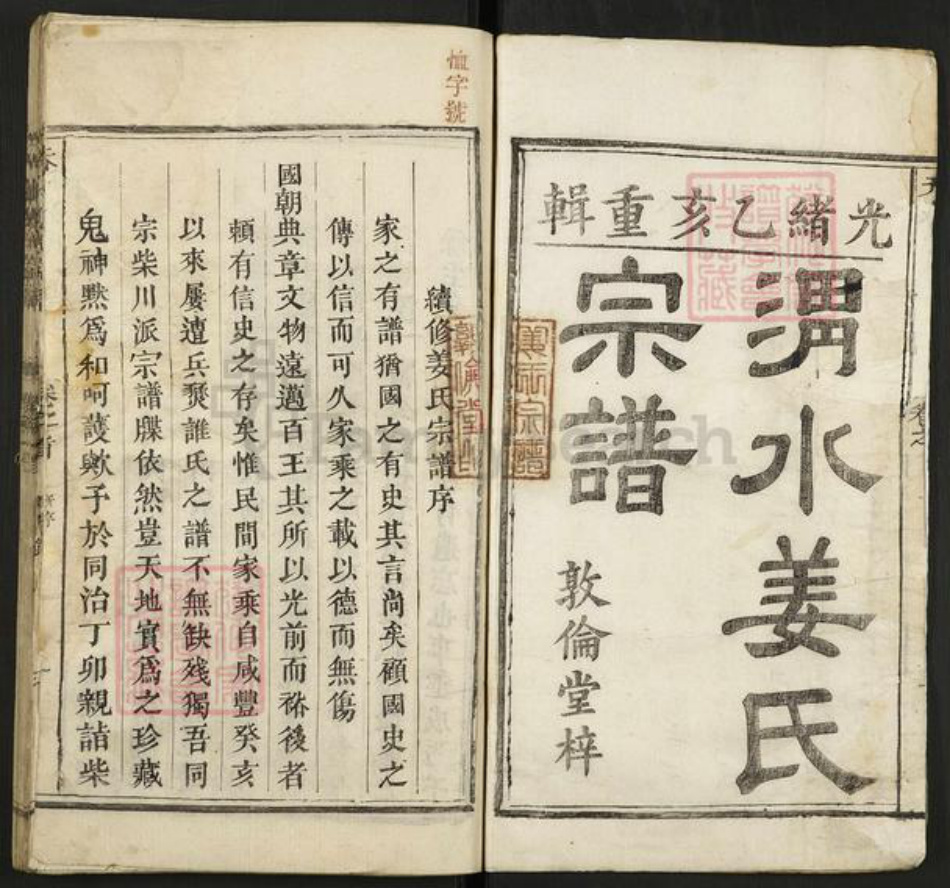 光緒乙亥重輯
渭水姜氏
宗譜
敦倫堂梓
恤字號
續修姜氏宗譜序
家之有譜猶國之有史其言尚矣顧國史之
傳以信而可久家乘之載以德而無傷
國朝典章文物遠邁百王其所以光前而裕後者
頼有信史之存矣惟民間家乘自咸豐癸亥
以來屢遭兵燹誰氏之譜不無缺殘獨吾同
宗柴川派宗譜牒依然豈天地實爲之珍藏
鬼神黙爲和呵護歟予於同治丁卯親詣柴